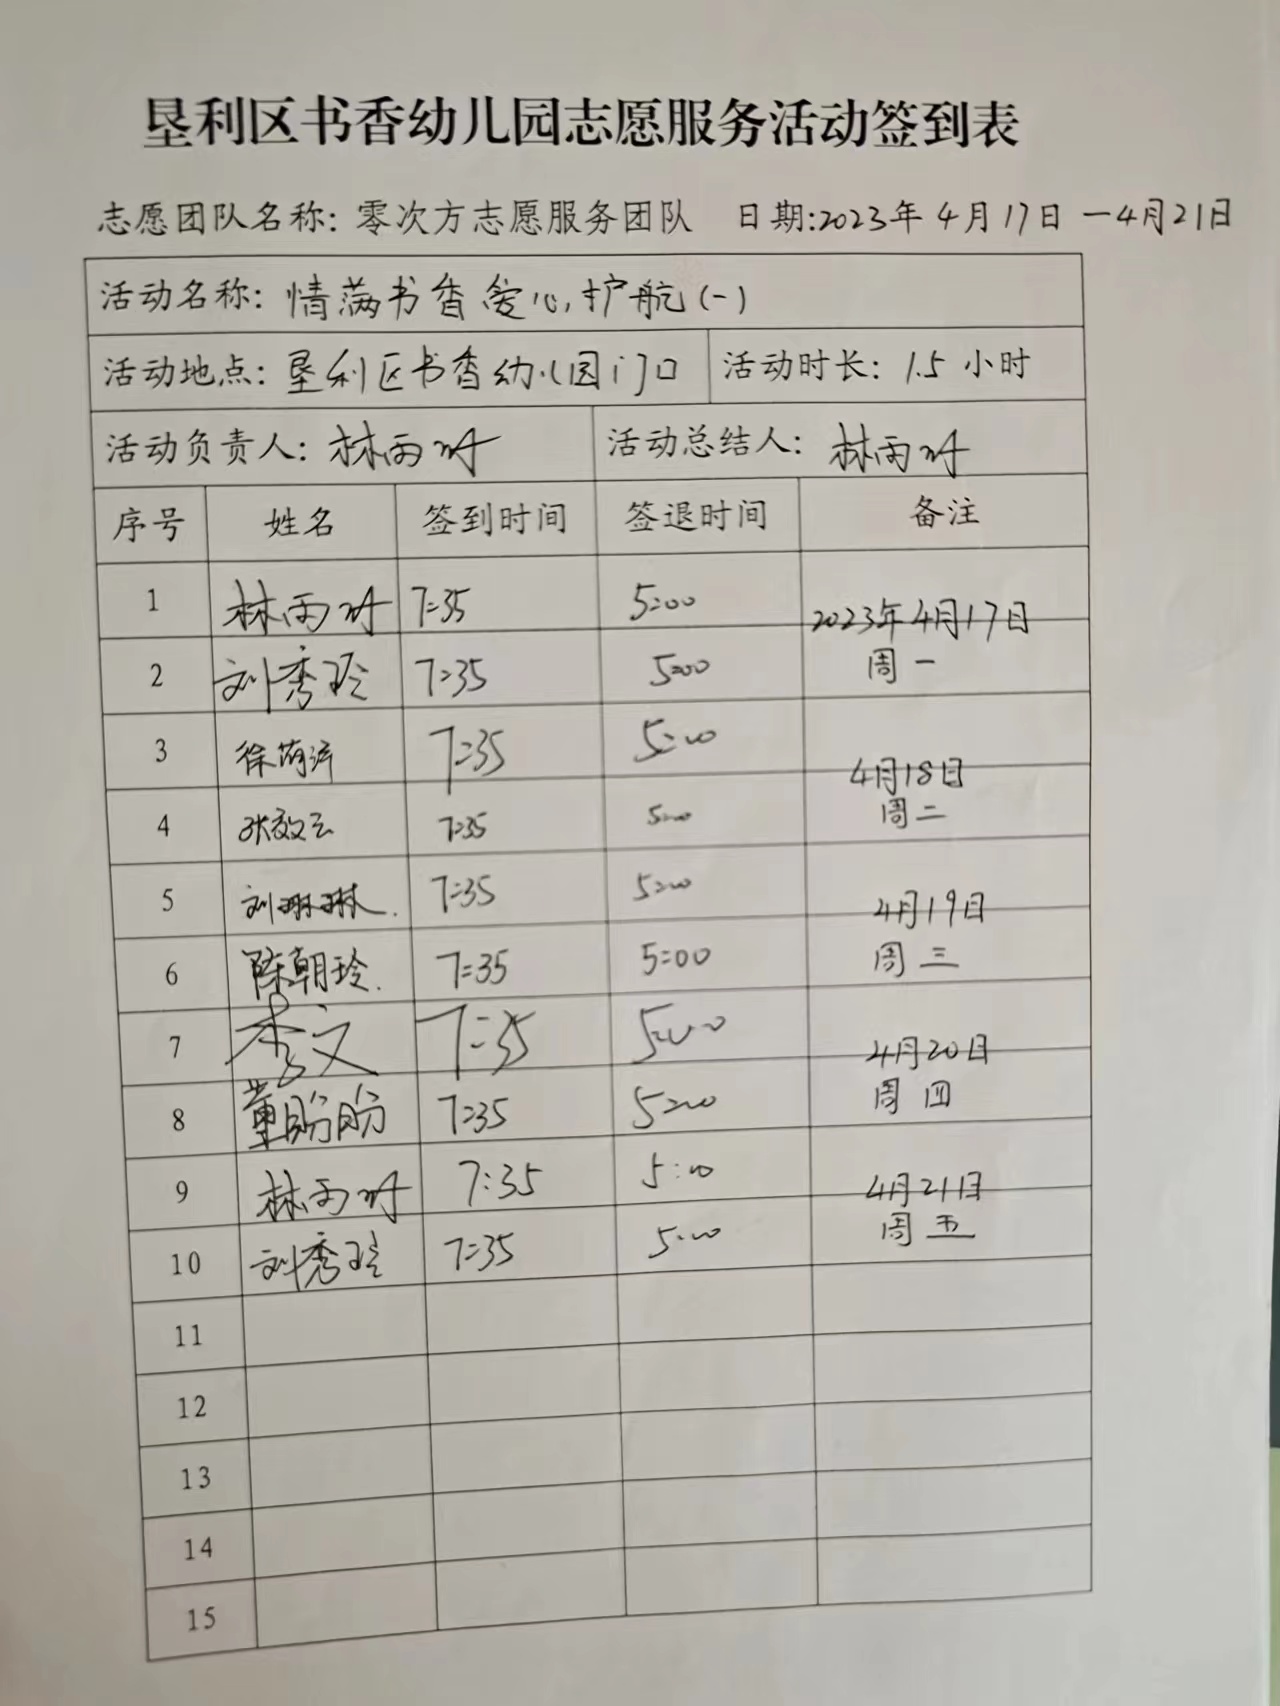 垦利区书香幼儿园志愿服务活动签到表
志愿团队名称：零次方志愿服务团队 日期：2023年4月17日—4月21日
活动名称：情满书香爱心护航(一)
活动地点：垦利区书香幼儿园门口 活动时长：1.5 小时
活动负责人：林雨时 活动总结人：林雨时
序号 姓名 签到时间 签退时间 备注
1 林雨时 7:35 5:00 2023年4月17日
2 刘秀玲 7:35 5:00 周一
3 徐 7:35 5:00 4月18日
4 张效云 7:35 5:00 周二
5 刘琳琳 7:35 5:00 4月19日
6 陈朝玲 7:35 5:00 周三
7 李文 7:35 5:00 4月20日
8 董盼盼 7:35 5:00 周四
9 林雨时 7:35 5:00 4月21日
10 刘秀玲 7:35 5:00 周五
11
12
13
14
15